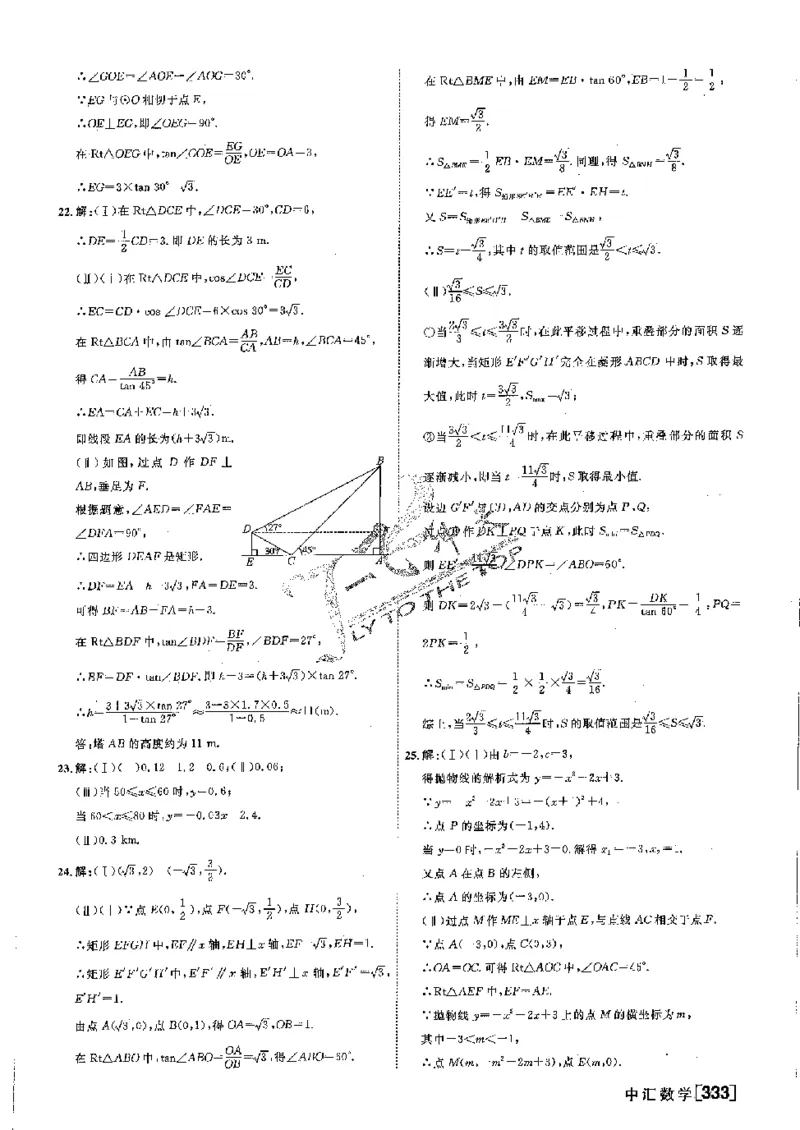 ∴∠GOE=∠AOE-∠AOG=30°.
∵EG与⊙O相切于点E,
∴OE⊥EG,即∠OEG=90°.
在Rt△OEG中,tan∠GOE=EG/OE,OE=OA=3,
∴EG=3×tan 30°=√3.
22.解:(Ⅰ)在Rt△DCE中,∠DCE=30°,CD=6,
∴DE=1/2CD=3.即DE的长为3 m.
(Ⅱ)(ⅰ)在Rt△DCE中,cos∠DCE=EC/CD,
∴EC=CD·cos∠DCE=6×cos 30°=3√3.
在Rt△BCA中,由tan∠BCA=AB/CA,AB=h,∠BCA=45°,
得CA=AB/tan 45°=h.
∴EA=CA+EC=h+3√3.
即线段EA的长为(h+3√3)m.
(ⅱ)如图,过点D作DF⊥
AB,垂足为F.
根据题意,∠AED=∠FAE=
∠DFA=90°,
∴四边形DEAF是矩形.
∴DF=EA=h+3√3,FA=DE=3.
可得BF=AB-FA=h-3.
在Rt△BDF中,tan∠BDF=BF/DF,∠BDF=27°,
∴BF=DF·tan∠BDF.即h-3=(h+3√3)×tan 27°.
∴h=(3+3√3×tan 27°)/(1-tan 27°)≈(3+3×1.7×0.5)/(1-0.5)≈11(m).
答:塔AB的高度约为11 m.
B
D 27°
30° 45°
E C A
23.解:(Ⅰ)(ⅰ)0.12 1.2 0.6;(ⅱ)0.06;
(ⅲ)当50≤x≤60时,y=0.6;
当60<x≤80时,y=-0.03x+2.4.
(Ⅱ)0.3 km.
24.解:(Ⅰ)(√3,2) (-√3,3/2).
(Ⅱ)(ⅰ)∵点E(0,1/2),点F(-√3,1/2),点H(0,3/2),
∴矩形EFGH中,EF∥x轴,EH⊥x轴,EF=√3,EH=1.
∴矩形E′F′G′H′中,E′F′∥x轴,E′H′⊥x轴,E′F′=√3,
E′H′=1.
由点A(√3,0),点B(0,1),得OA=√3,OB=1.
在Rt△ABO中,tan∠ABO=OA/OB=√3,得∠ABO=60°.
在Rt△BME中,由EM=EB·tan 60°,EB=1-1/2=1/2,
得EM=√3/2.
∴S△BME=1/2EB·EM=√3/8.同理,得S△BNH=√3/8.
∵EE′=t,得S矩形EE′H′H=EE′·EH=t.
又S=S矩形EE′H′H-S△BME-S△BNH,
∴S=t-√3/4,其中t的取值范围是√3/2<t≤√3.
(ⅱ)√3/16≤S≤√3.
①当2√3/3≤t≤3√3/2时,在此平移过程中,重叠部分的面积S逐
渐增大,当矩形E′F′G′H′完全在菱形ABCD中时,S取得最
大值,此时t=3√3/2,Smax=√3;
②当3√3/2<t≤11√3/4时,在此平移过程中,重叠部分的面积S
逐渐减小,即当t=11√3/4时,S取得最小值.
设边G′F′与CD,AD的交点分别为点P,Q,
过点D作DK⊥PQ于点K,此时Smin=S△PDQ.
则EE′=11√3/4,∠DPK=∠ABO=60°.
则DK=2√3-(11√3/4-√3)=√3/4,PK=DK/tan 60°=1/4,PQ=
2PK=1/2,
∴Smin=S△PDQ=1/2×1/2×√3/4=√3/16.
综上,当2√3/3≤t≤11√3/4时,S的取值范围是√3/16≤S≤√3.
25.解:(Ⅰ)(ⅰ)由b=-2,c=3,
得抛物线的解析式为y=-x²-2x+3.
∵y=-x²-2x+3=-(x+1)²+4,
∴点P的坐标为(-1,4).
当y=0时,-x²-2x+3=0.解得x₁=-3,x₂=1.
又点A在点B的左侧,
∴点A的坐标为(-3,0).
(ⅱ)过点M作ME⊥x轴于点E,与直线AC相交于点F.
∵点A(-3,0),点C(0,3),
∴OA=OC.可得Rt△AOC中,∠OAC=45°.
∴Rt△AEF中,EF=AE.
∵抛物线y=-x²-2x+3上的点M的横坐标为m,
其中-3<m<-1,
∴点M(m,-m²-2m+3),点E(m,0).
中汇数学[333]